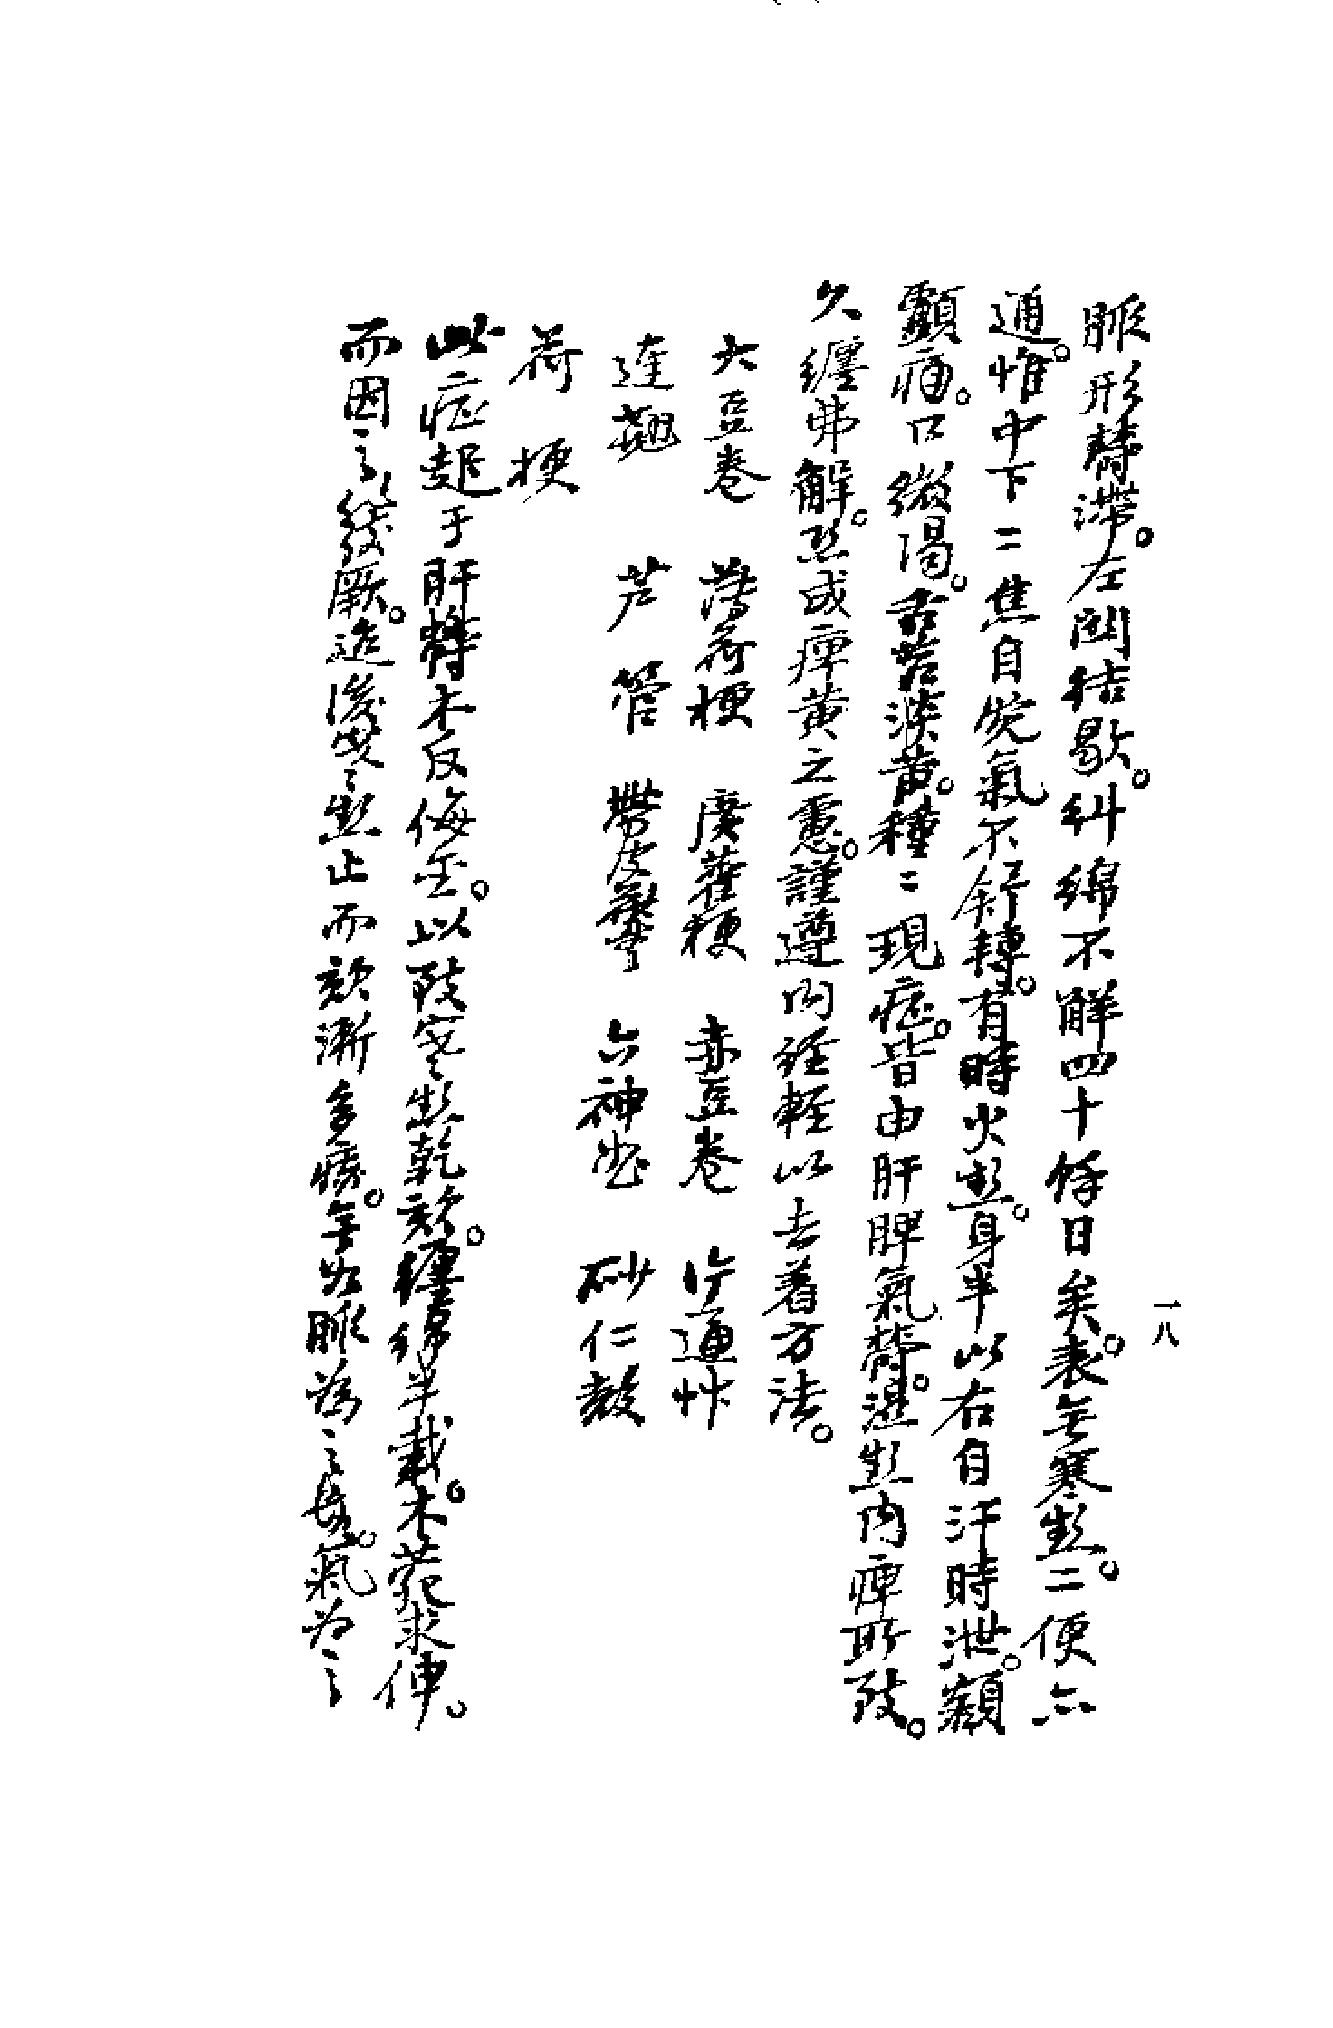 脈形鬱滯。左關結歇。糾綿不解四十餘日矣。表无寒熱。二便亦
通。惟中下二焦自覺氣不舒轉。有時火熱。身半以右自汗時泄。巔
顴痛。口微渴。舌苔淡黃。種〻現症。皆由肝脾氣鬱。濕熱內痺所致。
久纏弗解。恐成痺黃之慮。謹遵內經輕以去着方法。
大豆卷 薄荷梗 廣藿梗 赤豆卷 片通草
連翹 芦管 帶皮苓 六神曲 砂仁殼
荷梗
此症起于肝鬱木反侮金。以致寒〻熱乾欬。纏綿半載。木範求伸。
而因之發厥。迨後寒〻熱止而欬漸多痰。無如脈為之數。氣為之
一八